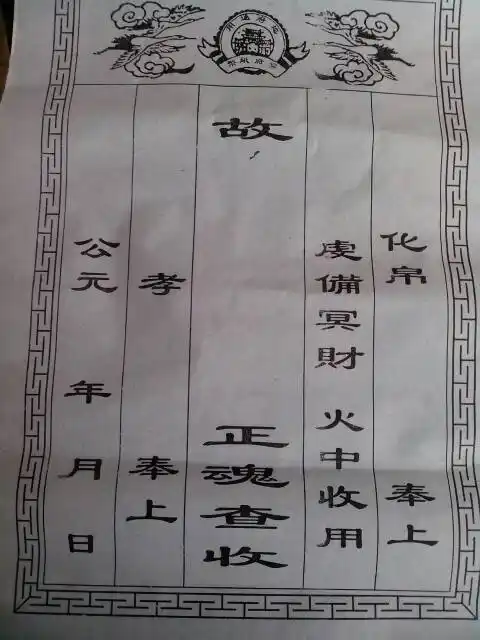 化帛 奉上
虔備冥財 火中收用
故 正魂查收
孝 奉上
公元 年 月 日